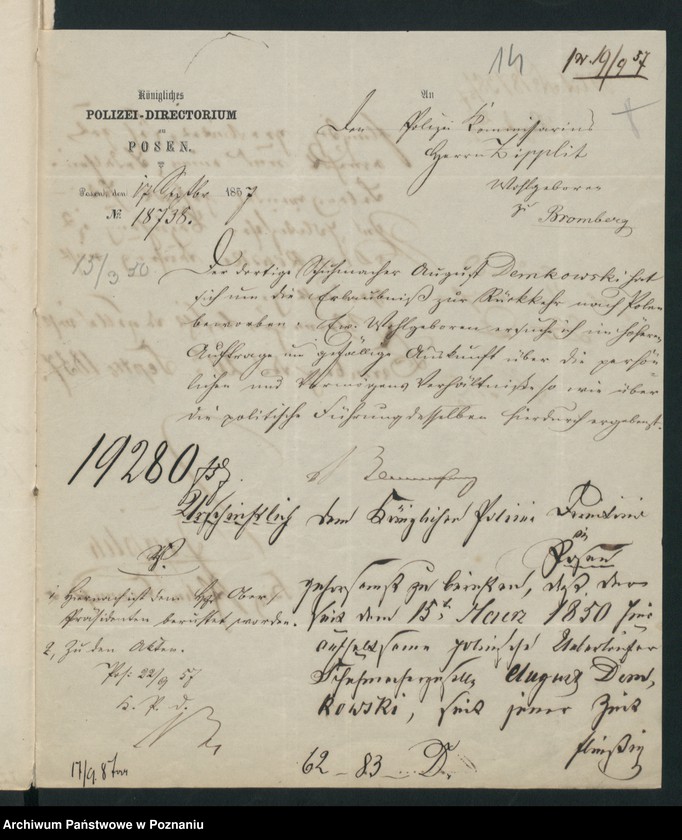 14
pr. 19/9 57
Königliches
POLIZEI-DIRECTORIUM
zu
POSEN.
Posen, den 17 Septbr 1857
№ 18738.
An
Den Polizei Commissarius
Herrn Zipplit
Wohlgeboren
zu Bromberg
15/3 50
Der dortige Schuhmacher August Demkowski hat
sich um die Erlaubniß zur Rückkehr nach Polen
beworben. Ew. Wohlgeboren ersuche ich im höheren
Auftrage um gefällige Auskunft über die persön
lichen und Vermögens Verhältniße so wie über
die politische Führung desselben hierdurch ergebenst.
19280/57.
Urschriftlich dem Königlichen Polizei Directorio
zu
Posen
gehorsamst zu berichten, daß der
seit dem 15t März 1850 hier
aufhaltsame polnische Ueberläufer
Schuhmachergeselle August Dem,
kowski, seit jener Zeit
fleißig
V.
1, Hiernach ist dem H. Ober,
Präsidenten berichtet worden.
2, Zu den Akten.
Pos: 22/9 57
K. P. D.
17/9. 87
62 – 83 D.
Archiwum Państwowe w Poznaniu